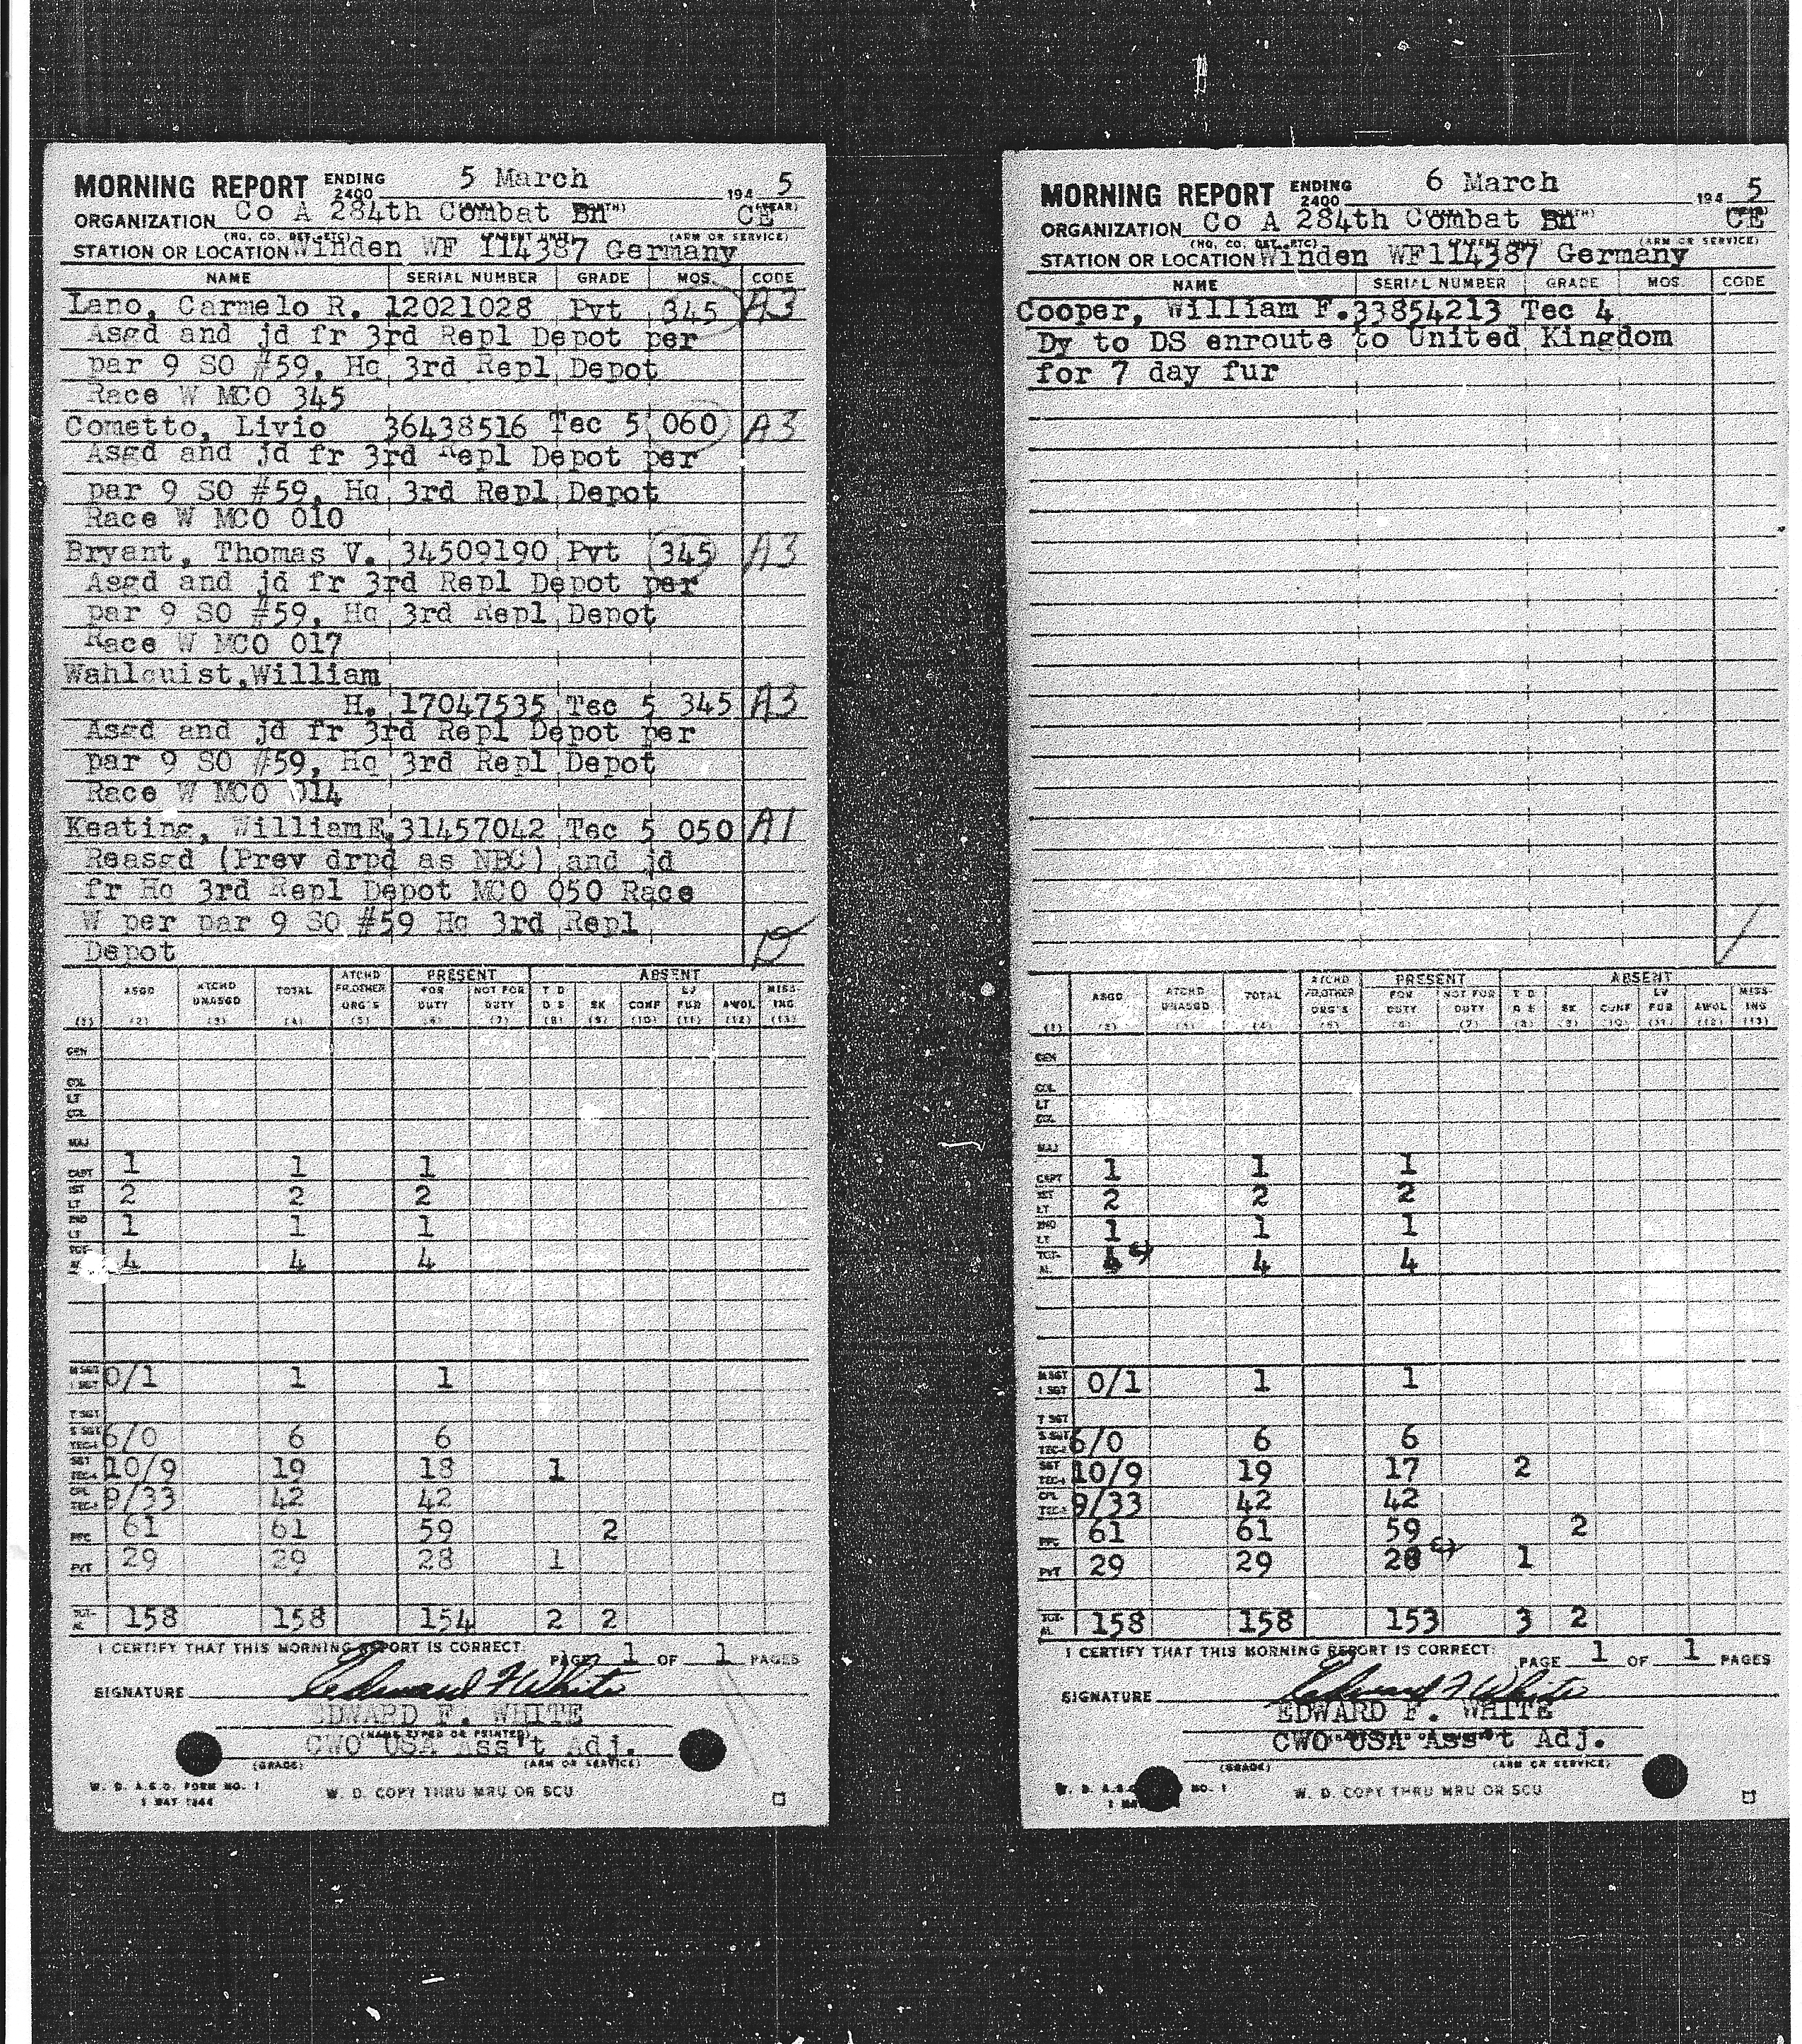 MORNING REPORT ENDING 2400 5 March 194 5
ORGANIZATION Co A 284th Combat Bn CE
(HQ, CO, DET, ETC) (ARM OR SERVICE)
STATION OR LOCATION Winden WF 114387 Germany
NAME SERIAL NUMBER GRADE MOS. CODE
Lano, Carmelo R. 12021028 Pvt 345 A3
Asgd and jd fr 3rd Repl Depot per
par 9 SO #59, Hq 3rd Repl Depot
Race W MCO 345
Cometto, Livio 36438516 Tec 5 060 A3
Asgd and jd fr 3rd Repl Depot per
par 9 SO #59, Hq 3rd Repl Depot
Race W MCO 010
Bryant, Thomas V. 34509190 Pvt 345 A3
Asgd and jd fr 3rd Repl Depot per
par 9 SO #59, Hq 3rd Repl Depot
Race W MCO 017
Wahlquist,William
H. 17047535 Tec 5 345 A3
Asgd and jd fr 3rd Repl Depot per
par 9 SO #59, Hq 3rd Repl Depot
Race W MCO 014
Keating, William E. 31457042 Tec 5 050 A1
Reasgd (Prev drpd as NBC) and jd
fr Hq 3rd Repl Depot MCO 050 Race
W per par 9 SO #59 Hq 3rd Repl
Depot
PRESENT ABSENT
ASGD ATCHD UNASGD TOTAL ATCHD FR.OTHER ORG'S FOR DUTY NOT FOR DUTY T D D S SK CONF LV FUR AWOL MISS-ING
(1) (2) (3) (4) (5) (6) (7) (8) (9) (10) (11) (12) (13)
GEN
COL
LT COL
MAJ
CAPT 1 1 1
1ST LT 2 2 2
2ND LT 1 1 1
4 4 4
M SGT 1 SGT 0/1 1 1
T SGT
S SGT TEC-3 6/0 6 6
SGT TEC-4 10/9 19 18 1
CPL TEC-5 9/33 42 42
PFC 61 61 59 2
PVT 29 29 28 1
TOT-AL 158 158 154 2 2
I CERTIFY THAT THIS MORNING REPORT IS CORRECT. PAGE 1 OF 1 PAGES
SIGNATURE Edward F White
EDWARD F. WHITE
(NAME TYPED OR PRINTED)
CWO USA Ass't Adj.
(GRADE) (ARM OR SERVICE)
W. D. A.G.O. FORM NO. 1
1 MAY 1944
W. D. COPY THRU MRU OR SCU
MORNING REPORT ENDING 2400 6 March 194 5
ORGANIZATION Co A 284th Combat Bn CE
(HQ, CO, DET, ETC) (ARM OR SERVICE)
STATION OR LOCATION Winden WF114387 Germany
NAME SERIAL NUMBER GRADE MOS. CODE
Cooper, William F. 33854213 Tec 4
Dy to DS enroute to United Kingdom
for 7 day fur
PRESENT ABSENT
ASGD ATCHD UNASGD TOTAL ATCHD FR.OTHER ORG'S FOR DUTY NOT FOR DUTY T D D S SK CONF LV FUR AWOL MISS-ING
(1) (2) (3) (4) (5) (6) (7) (8) (9) (10) (11) (12) (13)
GEN
COL
LT COL
MAJ
CAPT 1 1 1
1ST LT 2 2 2
2ND LT 1 1 1
TOT-AL 4 4 4
M SGT 1 SGT 0/1 1 1
T SGT
S SGT TEC-3 6/0 6 6
SGT TEC-4 10/9 19 17 2
CPL TEC-5 9/33 42 42
PFC 61 61 59 2
PVT 29 29 28 1
TOT-AL 158 158 153 3 2
I CERTIFY THAT THIS MORNING REPORT IS CORRECT. PAGE 1 OF 1 PAGES
SIGNATURE Edward F White
EDWARD F. WHITE
CWO USA Ass't Adj.
(GRADE) (ARM OR SERVICE)
NO. 1
W. D. COPY THRU MRU OR SCU